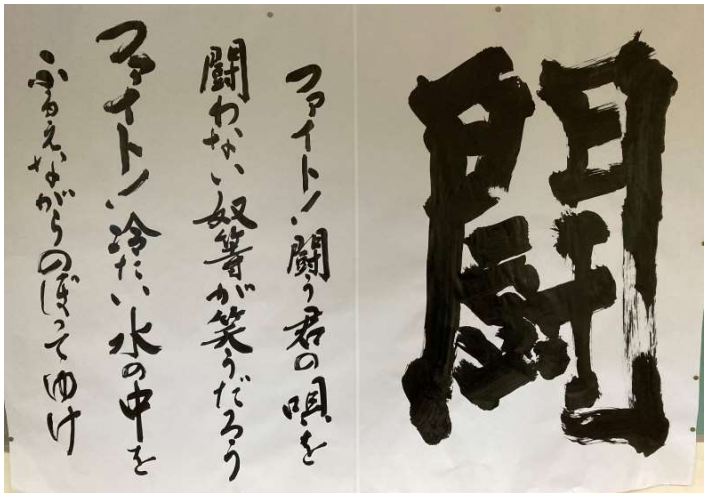 闘
ファイト!闘う君の唄を
闘わない奴等が笑うだろう
ファイト!冷たい水の中を
ふるえながらのぼってゆけ